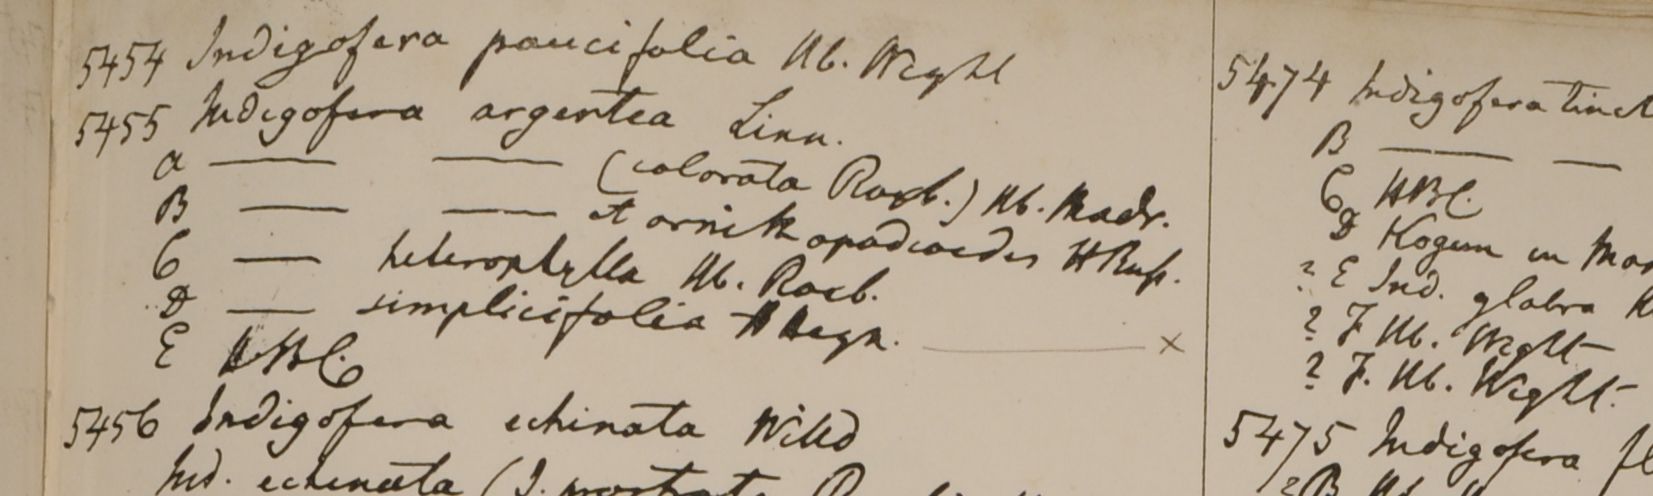 5454 Indigofera paucifolia Hb. Wight
5455 Indigofera argentea Linn.
a —— —— (colorata Roxb.) Hb. Madr.
B —— —— et ornithopodioides H Russ.
C —— heterophylla Hb. Roxb.
D —— simplicifolia H Heyn. —— ×
E HBC.
5456 Indigofera echinata Willd
Ind. echinata (I. prostrata
5474 Indigofera Tinct
B —— ——
C HBC.
D
? E Ind. glabra
? F. Hb. Wight
? F. Hb. Wight.
5475 Indigofera fl
? B